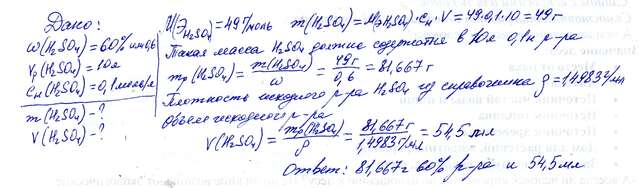 Дано:
ω(H₂SO₄)=60% или 0,6
Vp(H₂SO₄)=10л
Cн(H₂SO₄)=0,1моль/л
m(H₂SO₄)-?
V(H₂SO₄)-?
M(Э H₂SO₄)=49 г/моль m(H₂SO₄)=M(Э H₂SO₄)·Cн·V=49·0,1·10=49г
Такая масса H₂SO₄ должна содержатся в 10л 0,1н р-ра
mp(H₂SO₄)=m(H₂SO₄)/ω=49г/0,6=81,667г
Плотность исходного р-ра H₂SO₄ из справочника ρ=1,4983г/мл
Объем исходного р-ра
V(H₂SO₄)=mp(H₂SO₄)/ρ=81,667г/1,4983г/мл=54,5мл
Ответ: 81,667г 60% р-ра и 54,5мл